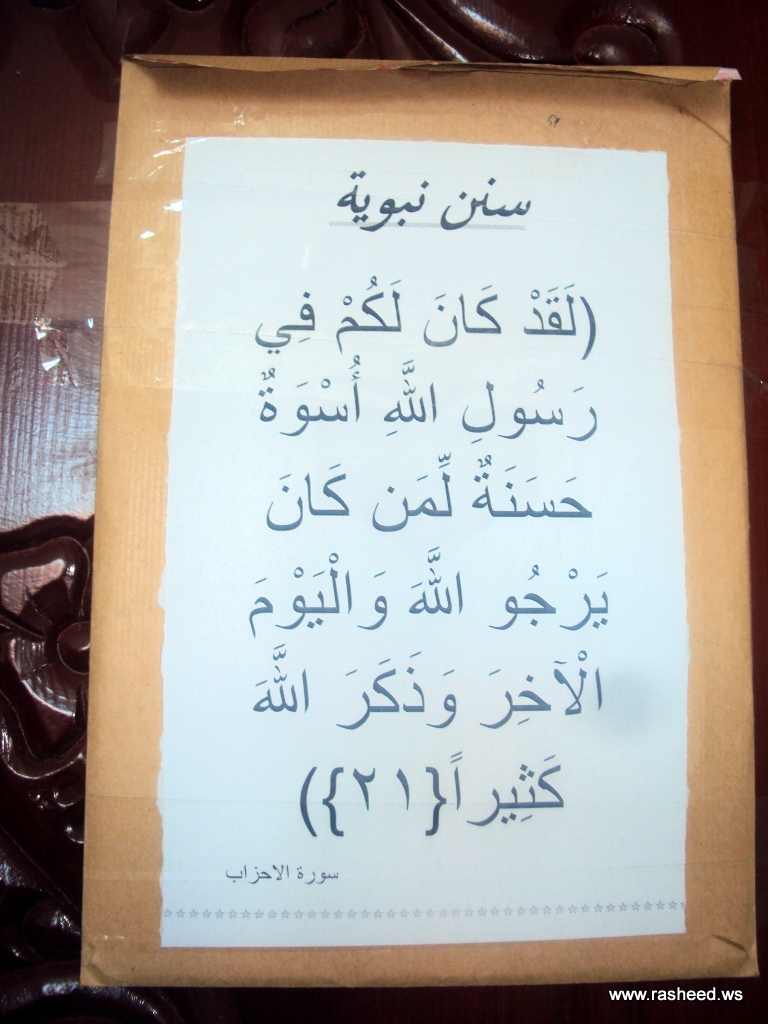 سنن نبوية
(لَقَدْ كَانَ لَكُمْ فِي
رَسُولِ اللَّهِ أُسْوَةٌ
حَسَنَةٌ لِّمَن كَانَ
يَرْجُو اللَّهَ وَالْيَوْمَ
الْآخِرَ وَذَكَرَ اللَّهَ
كَثِيراً{٢١})
سورة الاحزاب
www.rasheed.ws